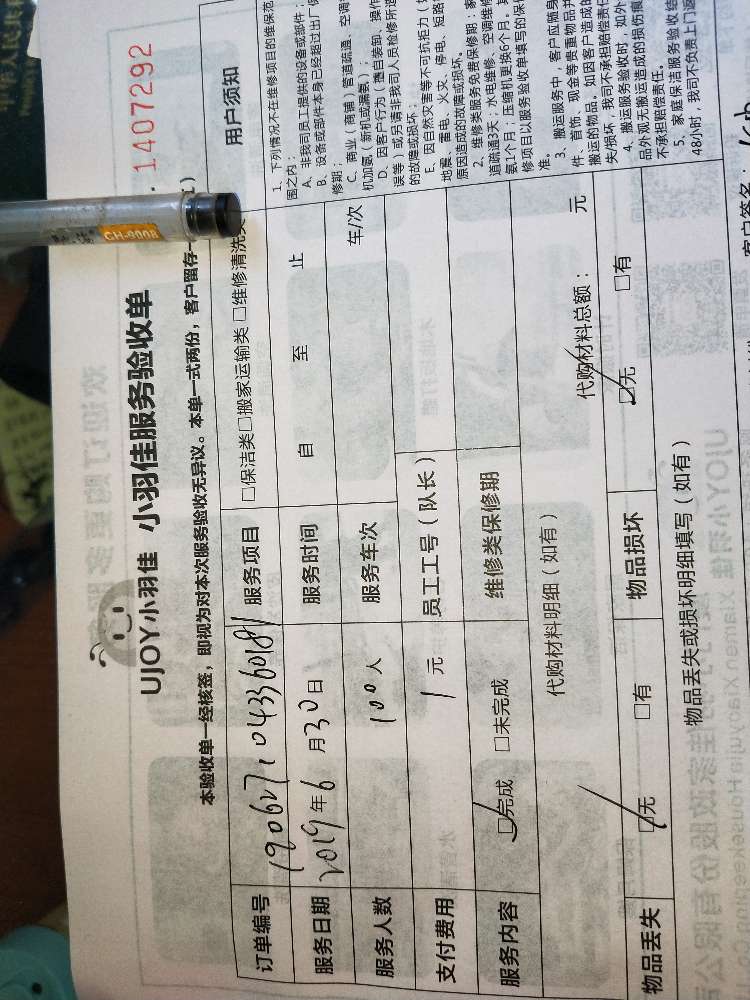 UJOY小羽佳 小羽佳服务验收单
1407292
本验收单一经核签，即视为对本次服务验收无异议。本单一式两份，客户留存一
订单编号
服务项目 □保洁类□搬家运输类 □维修清洗类
服务日期 2019年6月30日 服务时间 自 至 止
服务人数 100人 服务车次 车/次
支付费用 1元 员工工号（队长）
服务内容 □完成 □未完成 维修类保修期
代购材料明细（如有） 代购材料总额： 元
物品丢失 □无 □有 物品损坏 □无 □有
物品丢失或损坏明细填写（如有）
用户须知
1、下列情况不在维修项目的维保范
围之内：
A、非我司员工提供的设备或部件；
B、设备或部件本身已经超过出厂保
修期；
C、商业（商铺）管道疏通、空调
机加氨（新机或漏氨）；
D、因客户行为（擅自装卸、操作
误等）或另请非我司人员检修所造
的故障或损坏；
E、因自然灾害等不可抗拒力（如
地震、雷电、火灾、停电、短路
原因造成的故障或损坏。
2、维修类服务免费保修期：家
道疏通3天；水电维修、空调维修
氨1个月；压缩机更换6个月。其
修项目以服务验收单填写的保修
准。
3、搬运服务中，客户应随身
件、首饰、现金等贵重物品并
搬运的物品。如因客户造成的
失/损坏，我司不承担赔偿责任
4、搬运服务验收时，如外
品外观无搬运造成的损伤痕
不承担赔偿责任。
5、家庭保洁服务验收结
48小时，我司不负责上门返
客户签名：
CH-9008